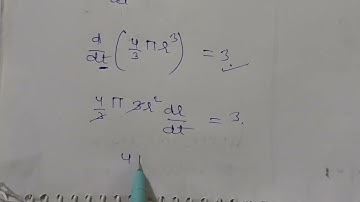 d/dt (4/3 π r³) = 3
4/3 π 3r² dr/dt = 3.
4